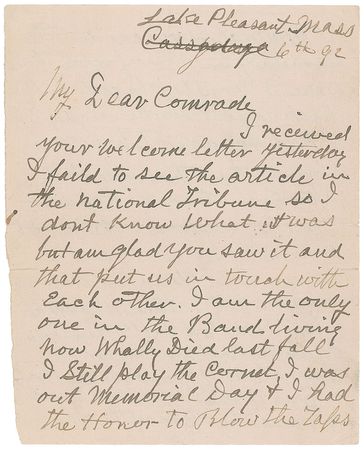 Lake Pleasant Mass
6th 92
My Dear Comrade
I received
your welcome letter yesterday
I faild to see the article in
the national Tribune so I
dont know what it was
but am glad you saw it and
that put us in touch with
Each other. I am the only
one in the Band living
now Whally Died last fall
I Still play the Cornet, I was
out Memorial Day & I had
the Honor to Blow the Taps